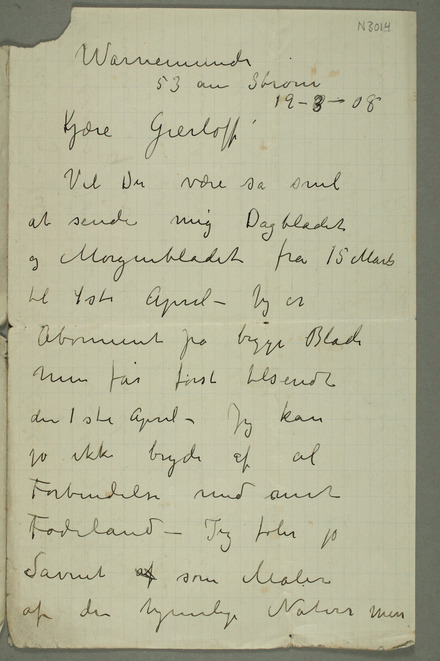 N3014
Warnemunde
53 am Strom
19-3-08
Kjære Gierløff!
Vil De være så snil
at sende mig Dagbladet
og Morgenbladet fra 15 Marts
til 1ste April – Jeg er
Abonnent på begge Blade
men får først tilsendt
den 1ste April – Jeg kan
jo ikke bryde af al
Forbindelse med mit
Fødeland – Jeg føler jo
Savnet som Maler
af den hjemlige Natur men